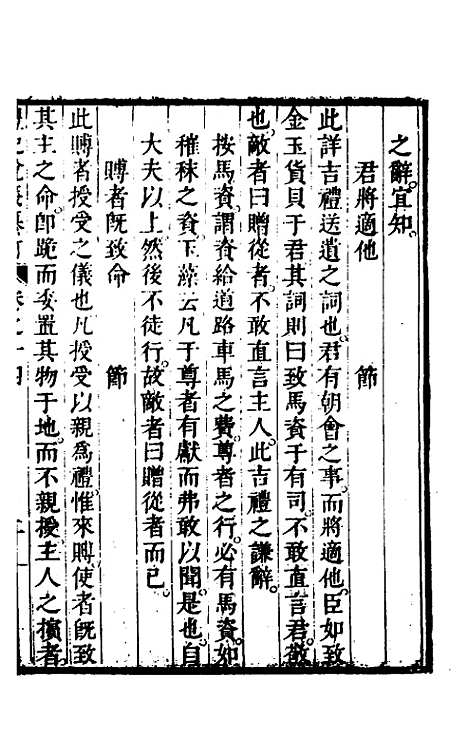 之辭宜知。
君將適他　節
此詳吉禮送遺之詞也君有朝會之事而將適他臣如致
金玉貨貝于君其詞則曰致馬資于有司不敢直言君敬
也敵者曰贈從者不敢直言主人此吉禮之謙辭
按馬資謂資給道路車馬之費尊者之行必有馬資如
稚秣之資玉藻云凡于尊者有獻而弗敢以聞是也自
大夫以上然後不徒行故敵者曰贈從者而已
賵者旣致命　節
此賵者授受之儀也凡授受以親爲禮惟來賵使者旣致
其主之命卽跪而委置其物于地而不親授主人之擯者
卷之十四